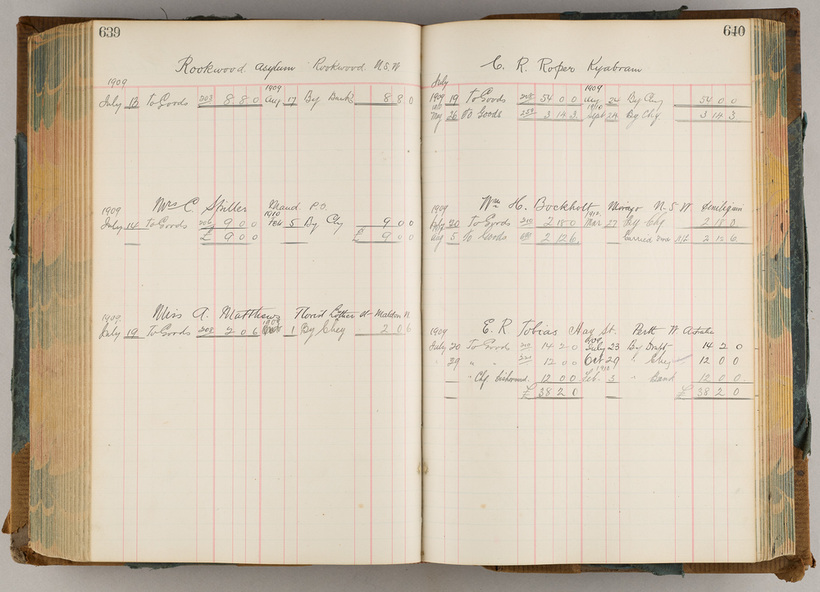 639
Rookwood Asylum Rookwood N.S.W
1909 1909
July 13 To Goods 208 8 8 0 Aug 17 By Bank 8 8 0
1909 Mrs C. Spiller Maud P.O
1910
July 14 To Goods 9 0 0 Feb 5 By Chq 9 0 0
£ 9 0 0 £ 9 0 0
1909 Miss A. Matthews Florist Esther St Maldon
1909
July 19 To Goods 208 2 0 6 1 By Cheq 2 0 6
640
C. R. Roper Kyabram
July 1909
1909 19 To Goods 208 54 0 0 Aug 24 By Chq 54 0 0
1910
May 26 To Goods 3 14 3 Sept 24 By Chq 3 14 3
1909 Wm H. Bockholt N.S.W
1912
20 To Goods 2 18 0 Mar 27 By Chq 2 18 0
Aug 5 To Goods 2 12 6 Carried 2 12 6
1909 E. R Tobias Hay St. Perth W Australia
1909
July 20 To Goods 14 2 0 July 23 By Draft 14 2 0
" 29 " 12 0 0 Oct 29 " Cheq 12 0 0
1910
" Chq Dishonored 12 0 0 Feb. 3 " Bank 12 0 0
£ 38 2 0 £ 38 2 0